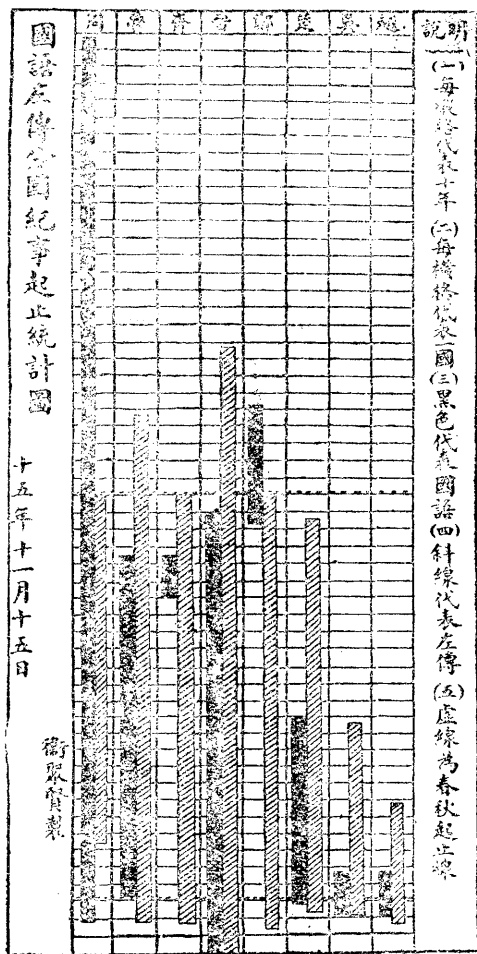 說明
(一)每縱格代表十年(二)每橫格代表一國(三)黑色代表國語(四)斜線代表左傳(五)虛線為春秋起止線
周 魯 齊 晉 鄭 楚 吳 越
國語左傳分國紀事起止統計圖
十五年十一月十五日
衛聚賢製